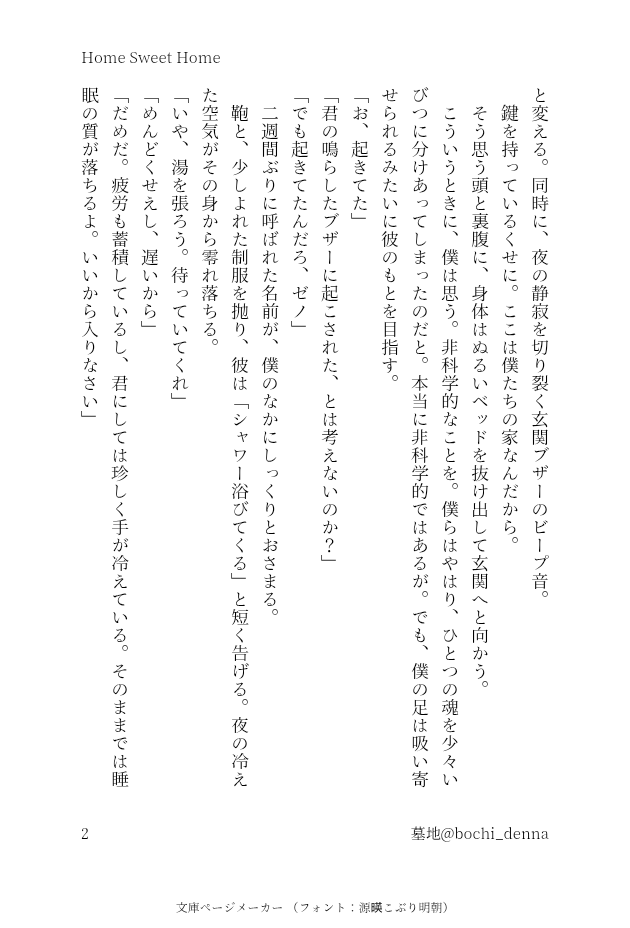 Home Sweet Home
と変える。同時に、夜の静寂を切り裂く玄関ブザーのビープ音。
鍵を持っているくせに。ここは僕たちの家なんだから。
そう思う頭と裏腹に、身体はぬるいベッドを抜け出して玄関へと向かう。
こういうときに、僕は思う。非科学的なことを。僕らはやはり、ひとつの魂を少々い
びつに分けあってしまったのだと。本当に非科学的ではあるが。でも、僕の足は吸い寄
せられるみたいに彼のもとを目指す。
「お、起きてた」
「君の鳴らしたブザーに起こされた、とは考えないのか？」
「でも起きてたんだろ、ゼノ」
二週間ぶりに呼ばれた名前が、僕のなかにしっくりとおさまる。
鞄と、少しよれた制服を抛り、彼は「シャワー浴びてくる」と短く告げる。夜の冷え
た空気がその身から零れ落ちる。
「いや、湯を張ろう。待っていてくれ」
「めんどくせえし、遅いから」
「だめだ。疲労も蓄積しているし、君にしては珍しく手が冷えている。そのままでは睡
眠の質が落ちるよ。いいから入りなさい」
2
墓地@bochi_denna
文庫ページメーカー（フォント：源暎こぶり明朝）